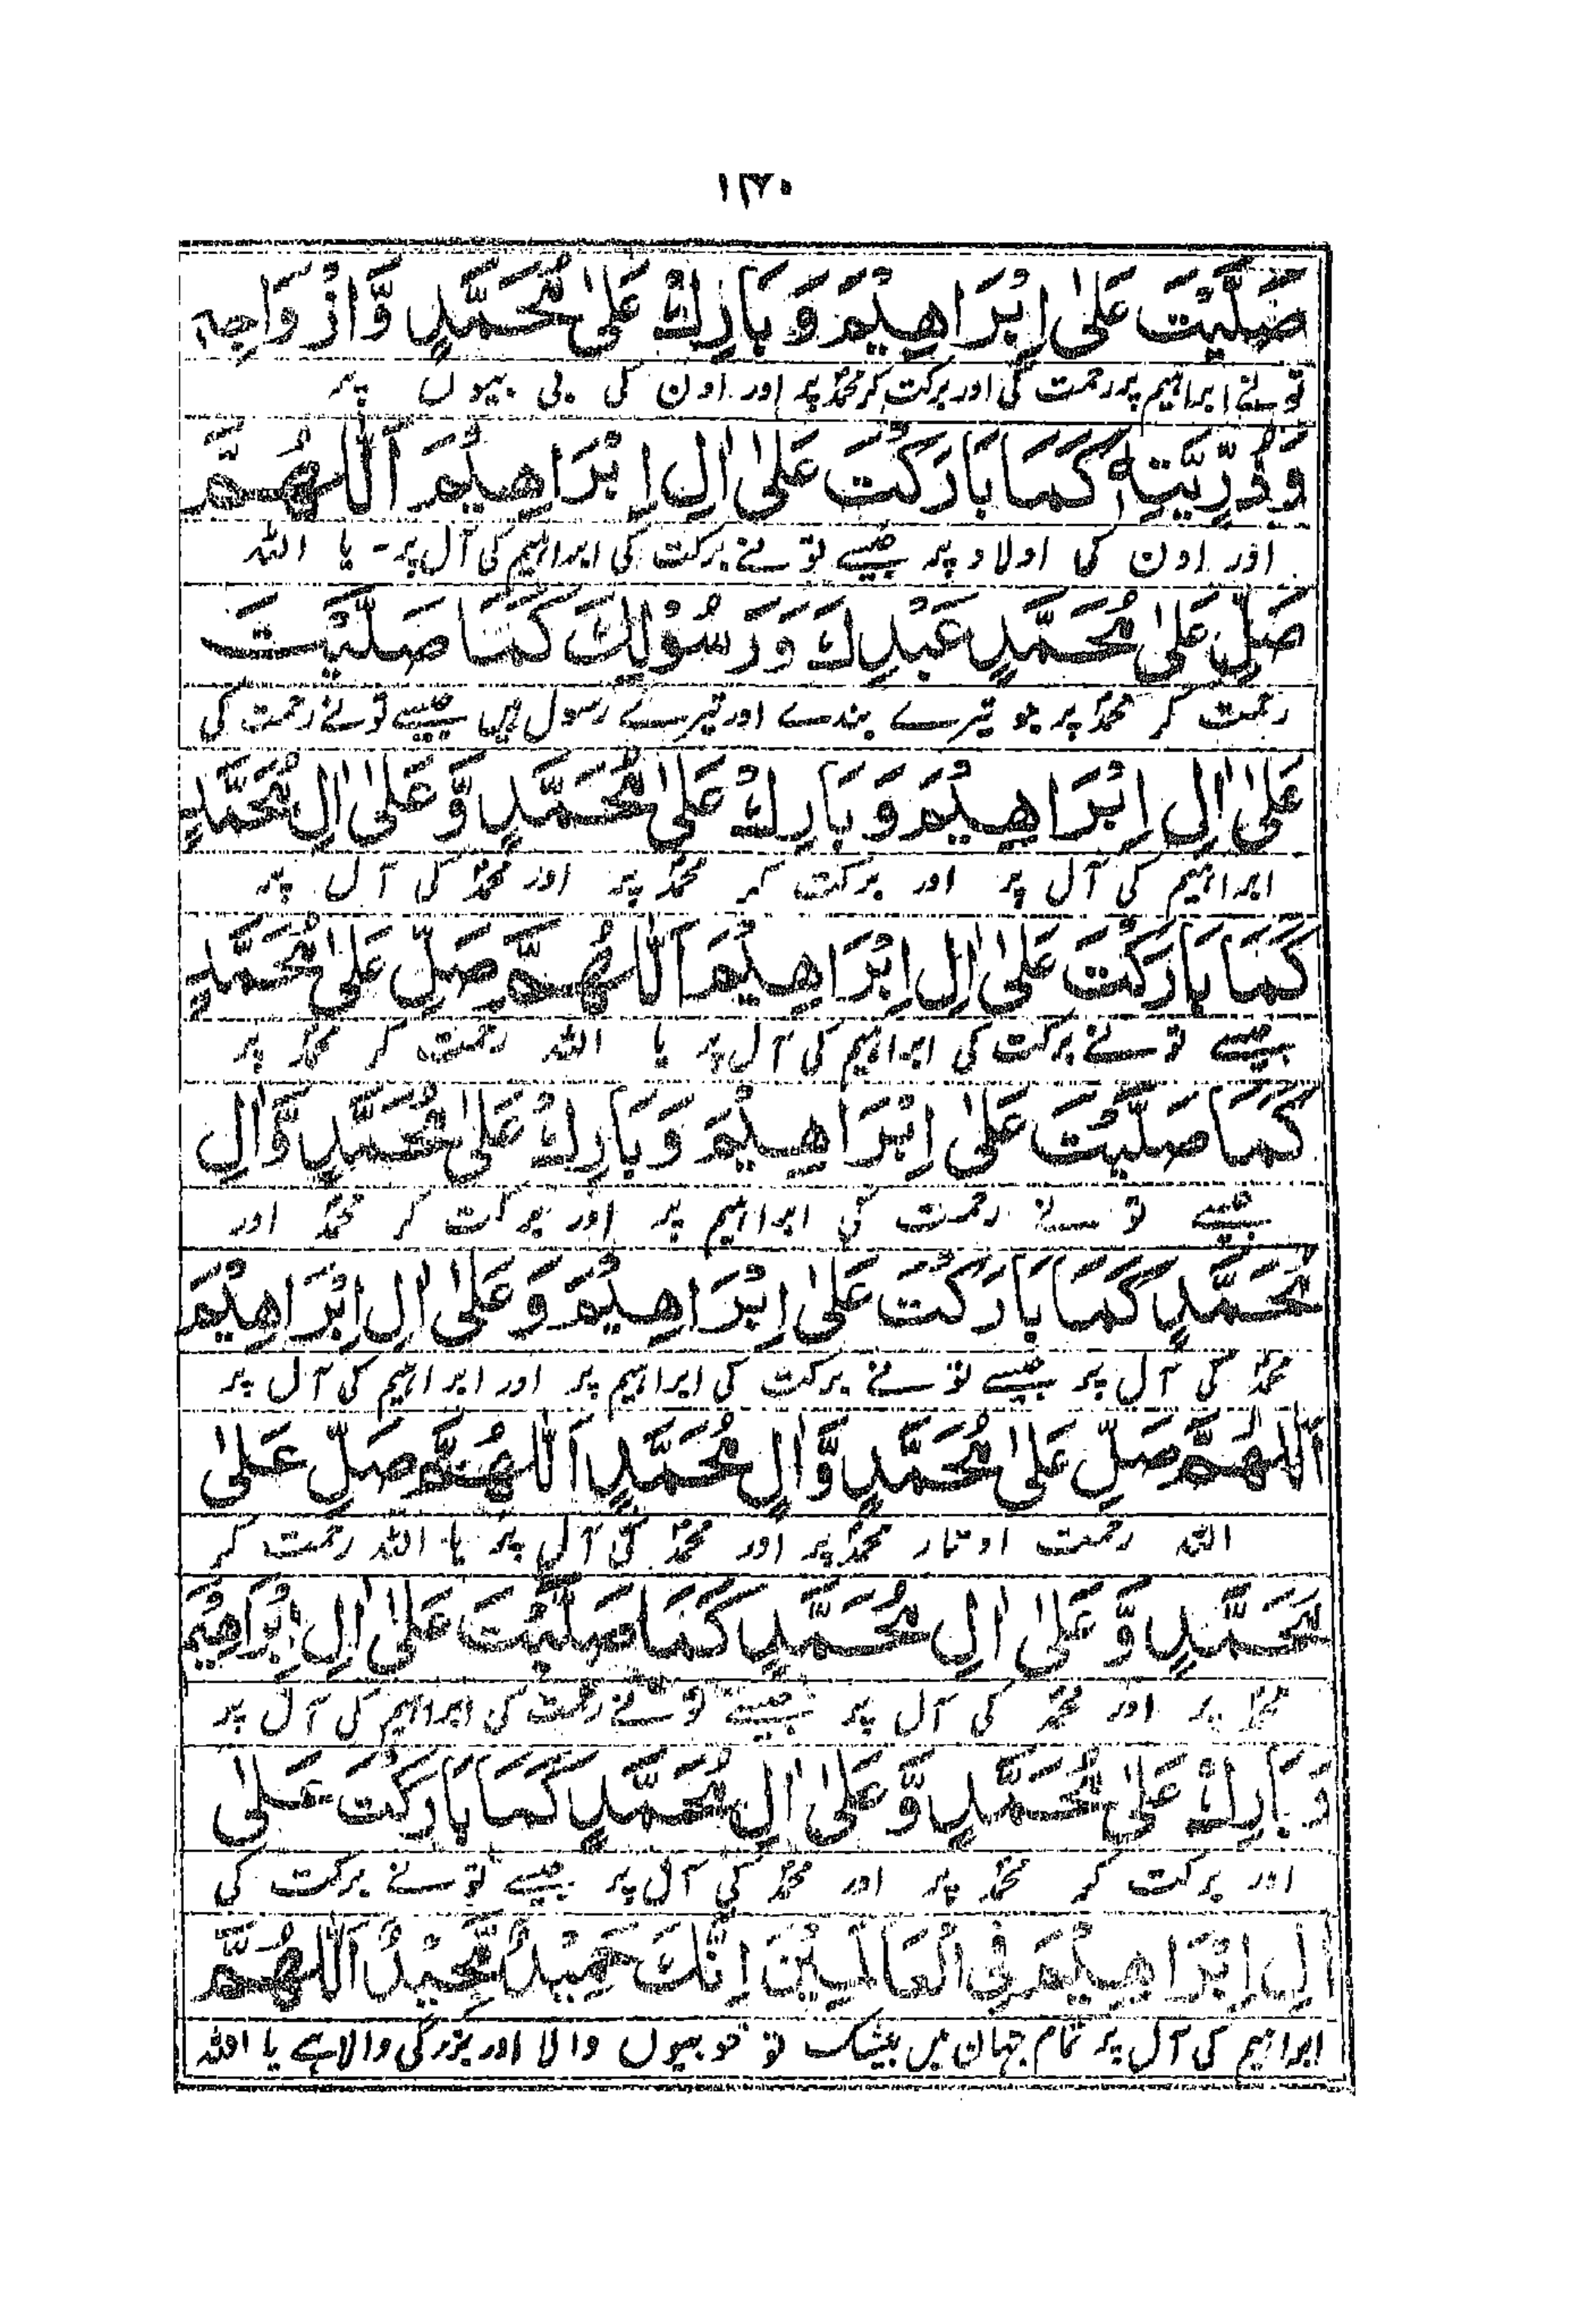 ۱۲۰
صَلَّيْتَ عَلٰى اِبْرَاهِيْمَ وَبَارِكْ عَلٰى مُحَمَّدٍ وَّاَزْوَاجِهٖ
تو نے ابراہیم پر رحمت کی اور برکت کر محمدؐ پر اور اون کی بی بیبیوں پر
وَذُرِّيَّتِهٖ كَمَا بَارَكْتَ عَلٰى اٰلِ اِبْرَاهِيْمَ اَللّٰهُمَّ
اور اون کی اولاد پر جیسے تو نے برکت کی ابراہیم کی آل پر - یا اللہ
صَلِّ عَلٰى مُحَمَّدٍ عَبْدِكَ وَرَسُوْلِكَ كَمَا صَلَّيْتَ
رحمت کر محمدؐ پر جو تیرے بندے اور تیرے رسول ہیں جیسے تو نے رحمت کی
عَلٰى اٰلِ اِبْرَاهِيْمَ وَبَارِكْ عَلٰى مُحَمَّدٍ وَّعَلٰى اٰلِ مُحَمَّدٍ
ابراہیم کی آل پر اور برکت کر محمدؐ پر اور محمدؐ کی آل پر
كَمَا بَارَكْتَ عَلٰى اٰلِ اِبْرَاهِيْمَ اَللّٰهُمَّ صَلِّ عَلٰى مُحَمَّدٍ
جیسے تو نے برکت کی ابراہیم کی آل پر یا اللہ رحمت کر محمدؐ پر
كَمَا صَلَّيْتَ عَلٰى اِبْرَاهِيْمَ وَبَارِكْ عَلٰى مُحَمَّدٍ وَّاٰلِ
جیسے تو نے رحمت کی ابراہیم پر اور برکت کر محمدؐ اور
مُحَمَّدٍ كَمَا بَارَكْتَ عَلٰى اِبْرَاهِيْمَ وَعَلٰى اٰلِ اِبْرَاهِيْمَ
محمدؐ کی آل پر جیسے تو نے برکت کی ابراہیم پر اور ابراہیم کی آل پر
اَللّٰهُمَّ صَلِّ عَلٰى مُحَمَّدٍ وَّاٰلِ مُحَمَّدٍ اَللّٰهُمَّ صَلِّ عَلٰى
اللہ رحمت اوتار محمدؐ پر اور محمدؐ کی آل پر یا اللہ رحمت کر
مُحَمَّدٍ وَّعَلٰى اٰلِ مُحَمَّدٍ كَمَا صَلَّيْتَ عَلٰى اٰلِ اِبْرَاهِيْمَ
محمدؐ پر اور محمدؐ کی آل پر جیسے تو نے رحمت کی ابراہیم کی آل پر
وَبَارِكْ عَلٰى مُحَمَّدٍ وَّعَلٰى اٰلِ مُحَمَّدٍ كَمَا بَارَكْتَ عَلٰى
اور برکت کر محمدؐ پر اور محمدؐ کی آل پر جیسے تو نے برکت کی
اٰلِ اِبْرَاهِيْمَ فِى الْعَالَمِيْنَ اِنَّكَ حَمِيْدٌ مَّجِيْدٌ اَللّٰهُمَّ
ابراہیم کی آل پر تمام جہان میں بیشک تو خوبیوں والا اور بزرگی والا ہے یا اللہ